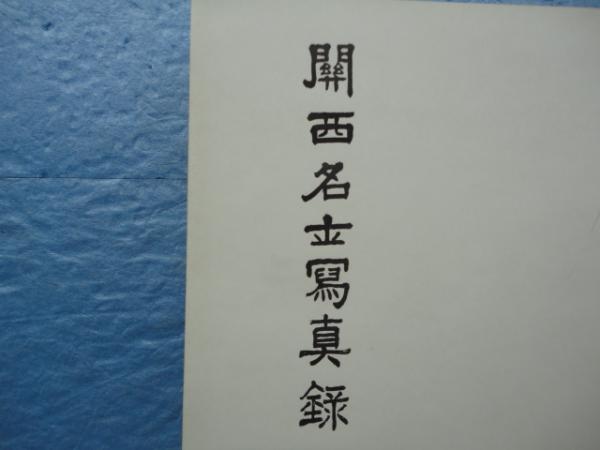 關西名士寫真錄